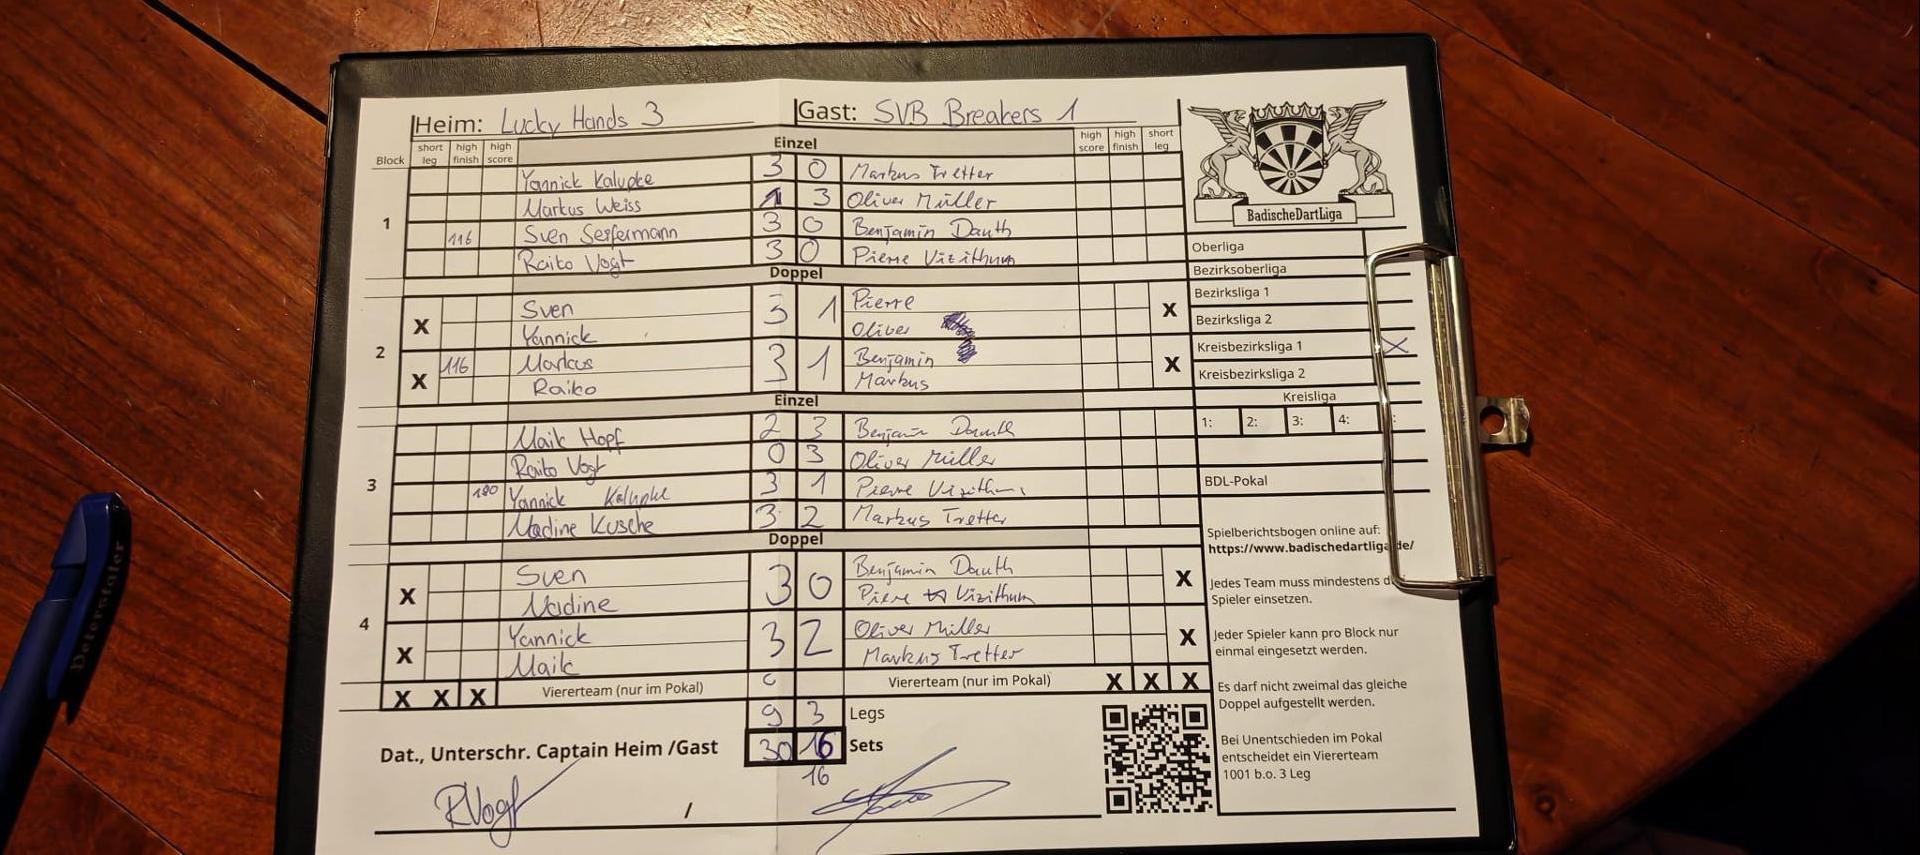 Heim: Lucky Hands 3 Gast: SVB Breakers 1
Block short leg high finish high score Einzel high score high finish short leg
1
Yannick Kalupke 3 0 Markus Tretter
Markus Weiss 1 3 Oliver Müller
116 Sven Seifermann 3 0 Benjamin Dauth
Raiko Vogt 3 0 Pierre Vizithum
Doppel
2
X Sven 3 1 Pierre X
Yannick Oliver
X 116 Markus 3 1 Benjamin X
Raiko Markus
Einzel
3
Maik Hopf 2 3 Benjamin Dauth
Raiko Vogt 0 3 Oliver Müller
180 Yannick Kalupke 3 1 Pierre Vizithum
Nadine Kusche 3 2 Markus Tretter
Doppel
4
X Sven 3 0 Benjamin Dauth X
Nadine Pierre Vizithum
X Yannick 3 2 Oliver Müller X
Maik Markus Tretter
X X X Viererteam (nur im Pokal) Viererteam (nur im Pokal) X X X
9 3 Legs
Dat., Unterschr. Captain Heim /Gast 30 16 Sets
16
RVogt /
BadischeDartLiga
Oberliga
Bezirksoberliga
Bezirksliga 1
Bezirksliga 2
Kreisbezirksliga 1 X
Kreisbezirksliga 2
Kreisliga
1: 2: 3: 4: :
BDL-Pokal
Spielberichtsbogen online auf:
https://www.badischedartliga.de/
Jedes Team muss mindestens
Spieler einsetzen.
Jeder Spieler kann pro Block nur
einmal eingesetzt werden.
Es darf nicht zweimal das gleiche
Doppel aufgestellt werden.
Bei Unentschieden im Pokal
entscheidet ein Viererteam
1001 b.o. 3 Leg
Peterstaler